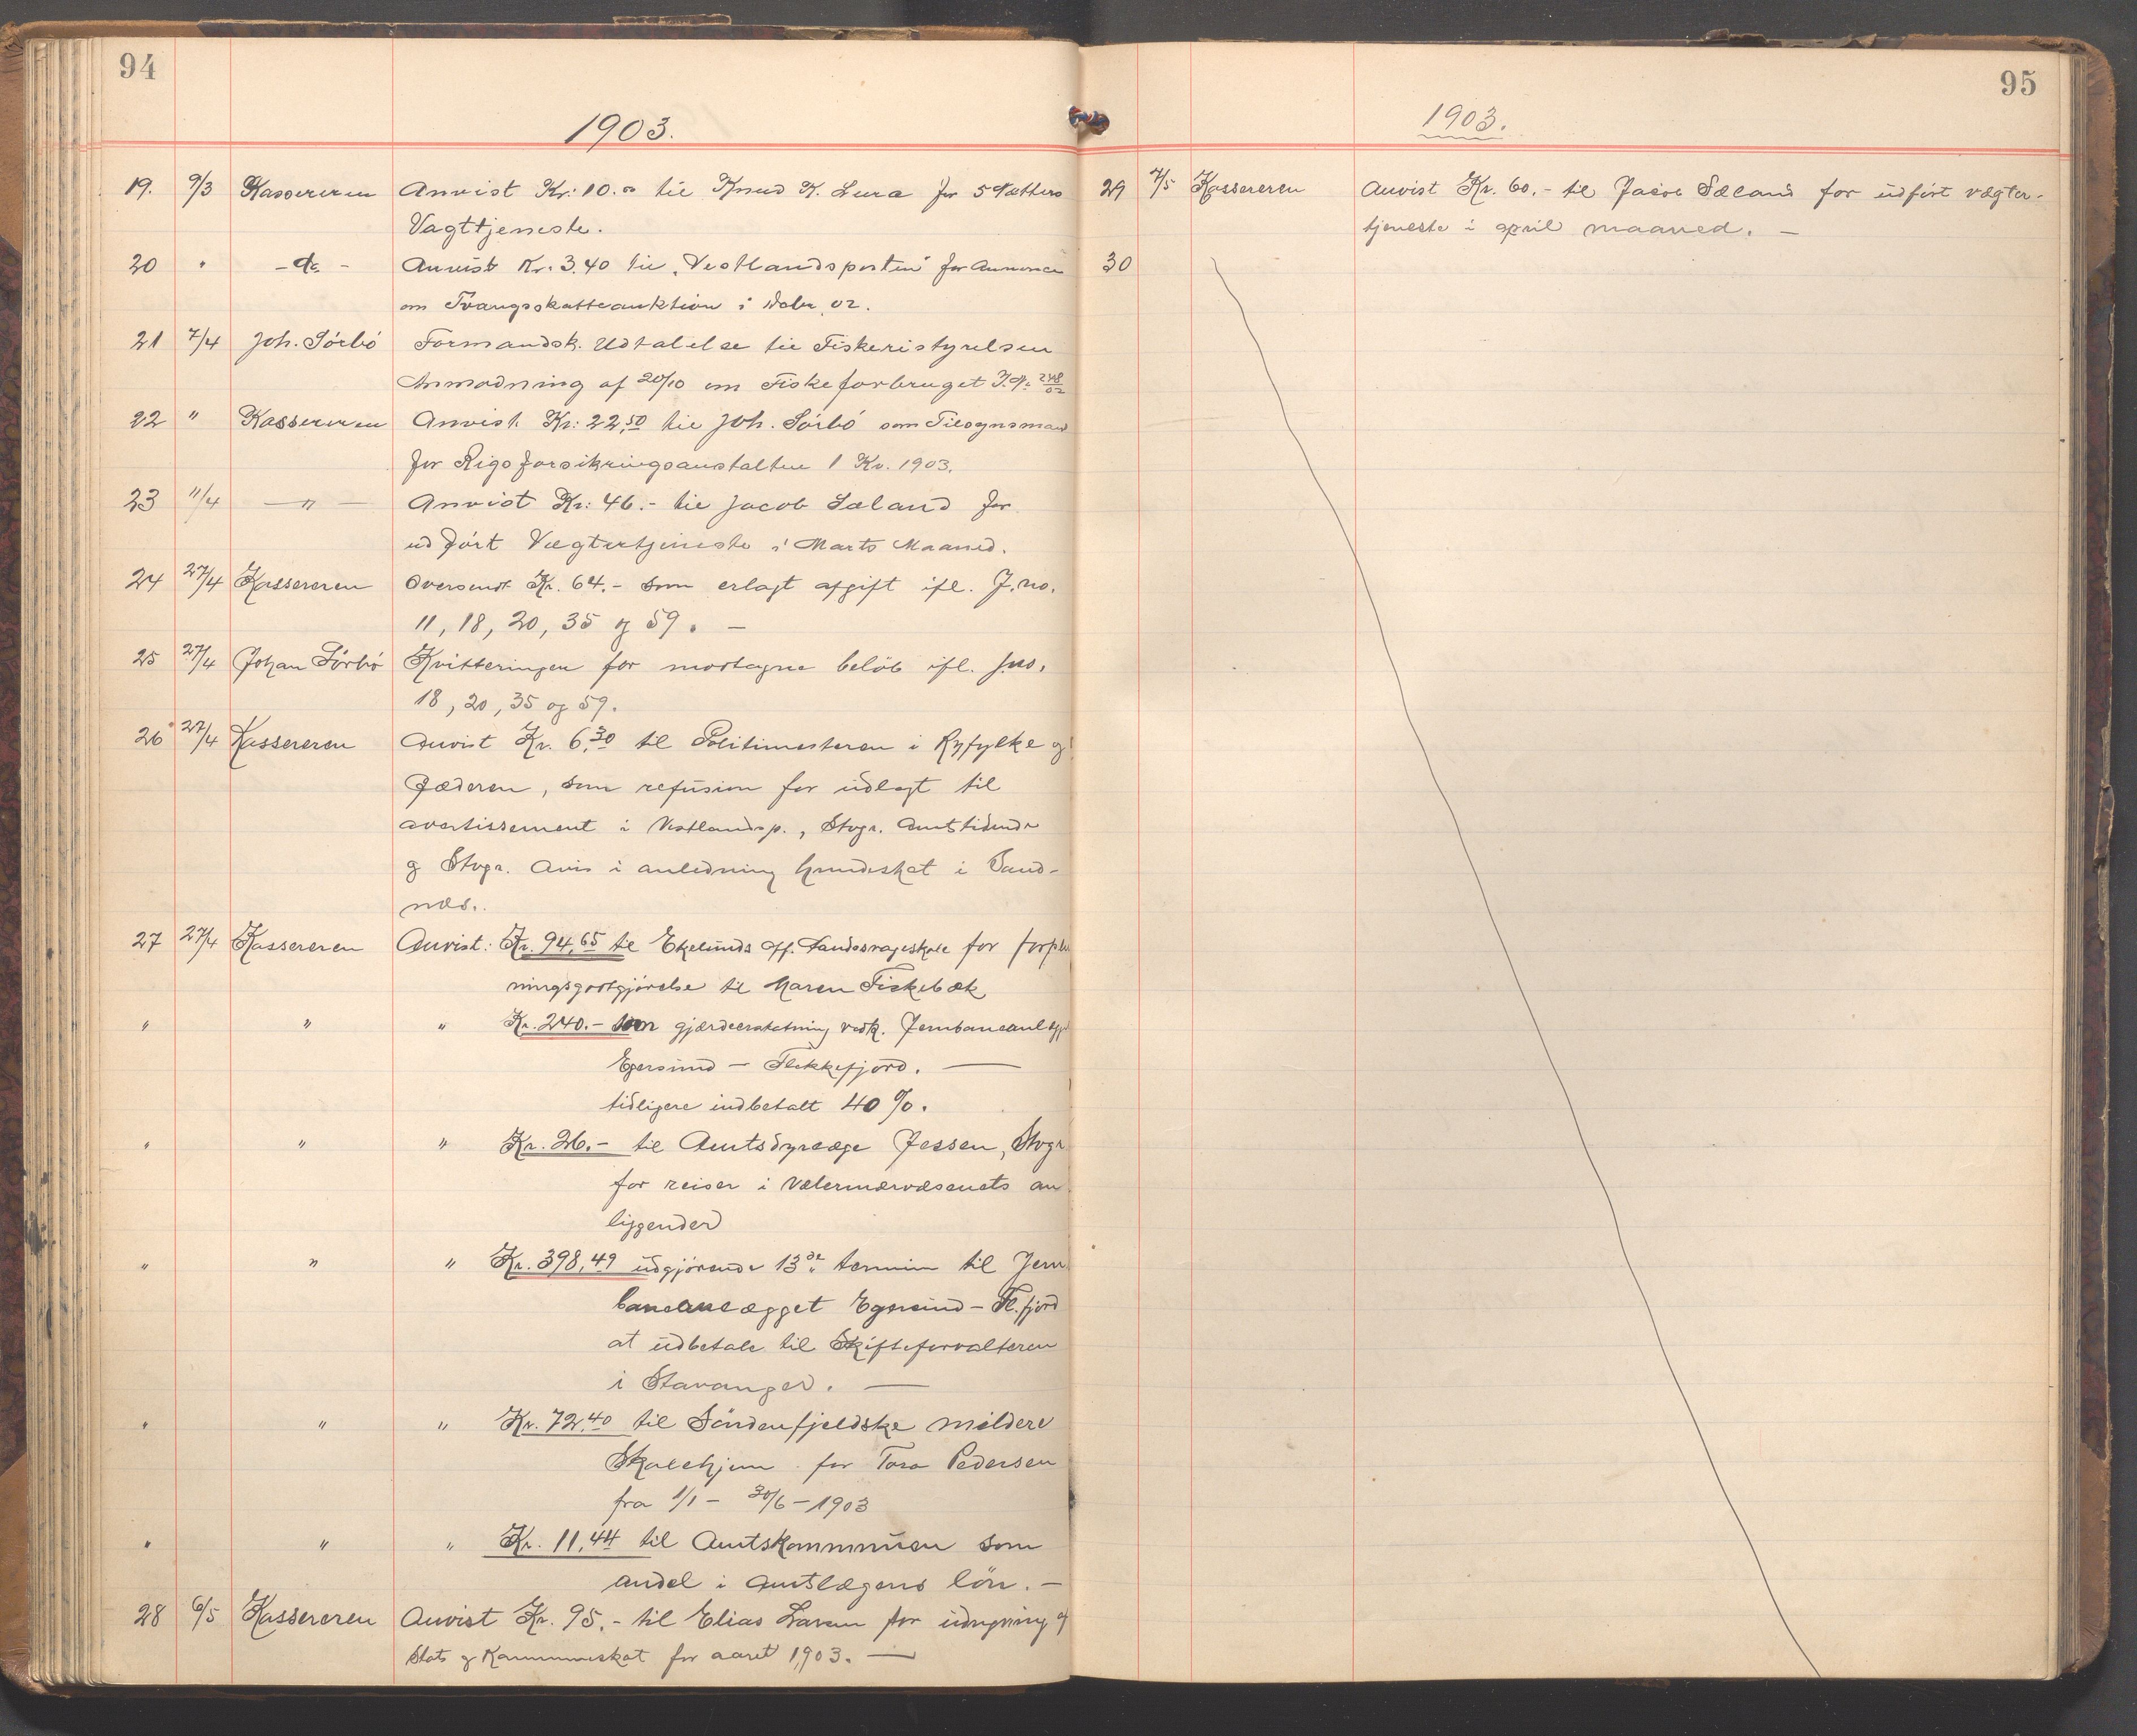 94
1903.
19. 9/3 Kassereren Anvist Kr: 10.00 til Knud K. Lura for 5 Nætters
Vagttjeneste.
20 " - do - Anvist Kr: 3.40 til "Vestlandsposten" for Annonce
om Tvangsskatteauktion i Debr. 02.
21 7/4 Joh. Sörbö Formandsk. Udtalelse til Fiskeristyrelsen
Anmodning af 20/10 om Fiskeforbruget J.No 248/02
22 " Kassereren Anvist Kr: 22,50 til Joh. Sörbö som Tilsynsmand
for Rigsforsikringsanstalten 1 Kv. 1903.
23 11/4 — " — Anvist Kr: 46.- til Jacob Sæland for
udfört Vægtertjeneste i Marts Maaned.
24 27/4 Kassereren Oversendt Kr. 64.- som erlagt afgift ifl. J.no.
11, 18, 20, 35 og 59. —
25 27/4 Johan Sörbö Kvitteringen for mottagne belöb ifl. J.no.
18, 20, 35 og 59.
26 27/4 Kassereren Anvist Kr. 6,30 til Politimesteren i Ryfylke og
Jæderen, som refusion for udlagt til
avertissement i Vestlandsp., Stvgr. Amtstidende
og Stvgr. Avis i anledning hundeskat i Sand-
næs.
27 27/4 Kassereren Anvist: Kr. 94,65 til Ekelunds off. Landssvageskole for forplei
ningsgodtgjörelse til Maren Fiskebæk
" " " Kr. 240.- som gjærdeerstatning vedk. Jernbaneanlægget
Egersund — Flekkefjord. —
tidligere indbetalt 40 %.
" " " Kr. 26.- til Amtsdyrlæge Jessen, Stvgr.
for reiser i Veterinærvæsenets an
liggender
" " " Kr. 398,49 udgjörende 13de termin til Jern
baneanlægget Egersund — Fl.fjord
at udbetale til Skifteforvalteren
i Stavanger. —
" " " Kr. 72,40 til Söndenfjeldske mildere
Skolehjem for Tora Pedersen
fra 1/1 — 30/6 — 1903
" " " Kr. 11,44 til Amtskommunen som
andel i Amtslægens lön. —
28 6/5 Kassereren Anvist Kr. 95.- til Elias Larsen for udregning af
Stats og Kommuneskat for aaret 1903. —
95
1903.
29 7/5 Kassereren Anvist Kr. 60.- til Jacob Sæland for udfört vægter-
tjeneste i april maaned. —
30